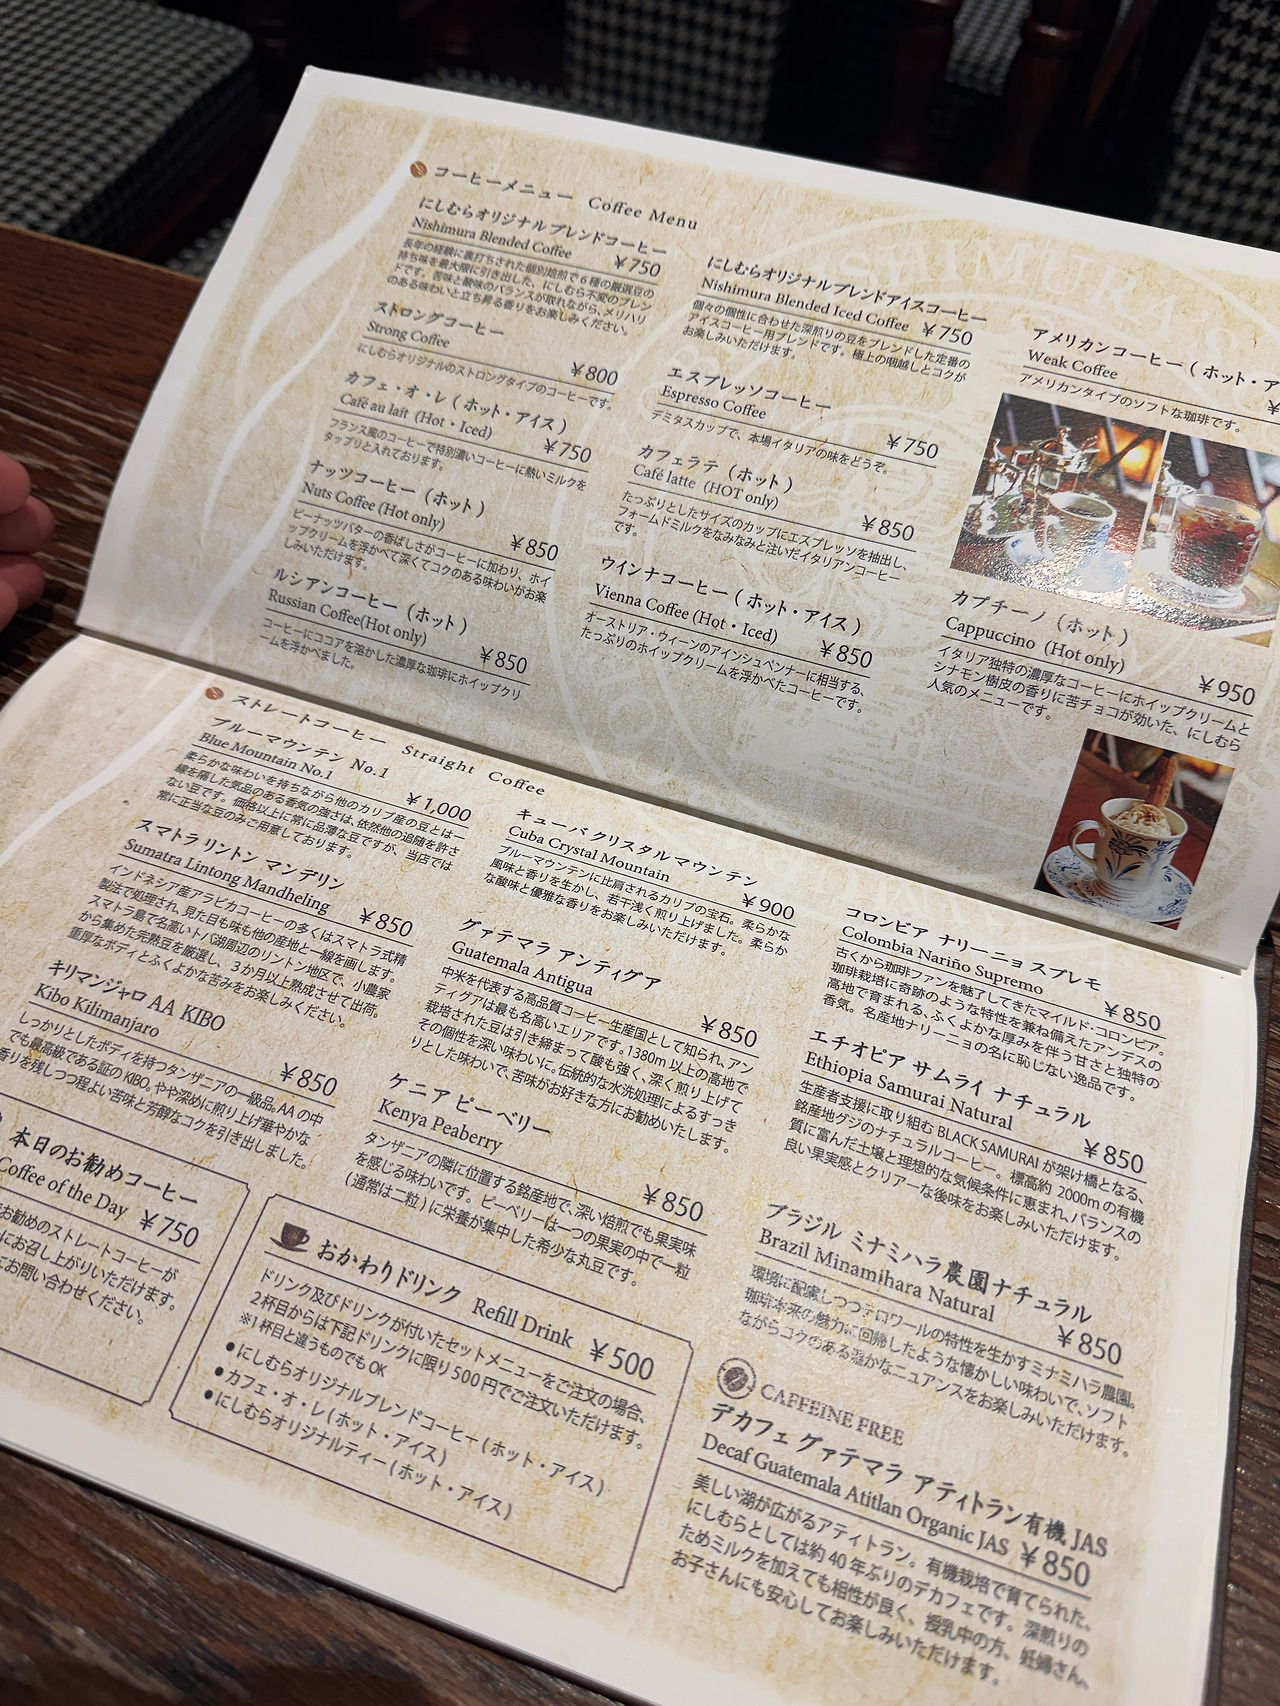 コーヒーメニュー Coffee Menu
にしむらオリジナルブレンドコーヒー
Nishimura Blended Coffee ¥750
長年の経験に裏打ちされた個別焙煎で6種の厳選豆の
持ち味を最大限に引き出した、にしむら不変のブレン
ドです。苦味と酸味のバランスが取れながら、メリハリ
のある味わいと立ち昇る香りをお楽しみください。
ストロングコーヒー
Strong Coffee ¥800
にしむらオリジナルのストロングタイプのコーヒーです。
カフェ・オ・レ(ホット・アイス)
Café au lait (Hot・Iced) ¥750
フランス風のコーヒーで特別濃いコーヒーに熱いミルクを
タップリと入れております。
ナッツコーヒー(ホット)
Nuts Coffee (Hot only) ¥850
ピーナッツバターの香ばしさがコーヒーに加わり、ホイ
ップクリームを浮かべて深くてコクのある味わいがお楽
しみいただけます。
ルシアンコーヒー(ホット)
Russian Coffee(Hot only) ¥850
コーヒーにココアを溶かした濃厚な珈琲にホイップクリ
ームを浮かべました。
にしむらオリジナルブレンドアイスコーヒー
Nishimura Blended Iced Coffee ¥750
個々の個性に合わせた深煎りの豆をブレンドした定番の
アイスコーヒー用ブレンドです。極上の咽越しとコクが
お楽しみいただけます。
エスプレッソコーヒー
Espresso Coffee ¥750
デミタスカップで、本場イタリアの味をどうぞ。
カフェラテ(ホット)
Café latte (HOT only) ¥850
たっぷりとしたサイズのカップにエスプレッソを抽出し、
フォームドミルクをなみなみと注いだイタリアンコーヒー
です。
ウインナコーヒー(ホット・アイス)
Vienna Coffee (Hot・Iced) ¥850
オーストリア・ウィーンのアインシュペンナーに相当する、
たっぷりのホイップクリームを浮かべたコーヒーです。
アメリカンコーヒー(ホット・ア
Weak Coffee ¥
アメリカンタイプのソフトな珈琲です。
カプチーノ(ホット)
Cappuccino (Hot only) ¥950
イタリア独特の濃厚なコーヒーにホイップクリームと
シナモン樹皮の香りに苦チョコが効いた、にしむら
人気のメニューです。
ストレートコーヒー Straight Coffee
ブルーマウンテン No.1
Blue Mountain No.1 ¥1,000
柔らかな味わいを持ちながら他のカリブ産の豆とは一
線を隔した気品のある香気の強さは、依然他の追随を許さ
ない豆です。価格以上に常に品薄な豆ですが、当店では
常に正当な豆のみご用意しております。
スマトラ リントン マンデリン
Sumatra Lintong Mandheling ¥850
インドネシア産アラビカコーヒーの多くはスマトラ式精
製法で処理され、見た目も味も他の産地と一線を画します。
スマトラ島で名高いトバ湖周辺のリントン地区で、小農家
から集めた完熟豆を厳選し、3か月以上熟成させて出荷。
重厚なボディとふくよかな苦みをお楽しみください。
キリマンジャロ AA KIBO
Kibo Kilimanjaro ¥850
しっかりとしたボディを持つタンザニアの一級品。AAの中
でも最高級である証のKIBO。やや深めに煎り上げ華やかな
香りを残しつつ程よい苦味と芳醇なコクを引き出しました。
キューバ クリスタル マウンテン
Cuba Crystal Mountain ¥900
ブルーマウンテンに比肩されるカリブの宝石。柔らかな
風味と香りを生かし、若干浅く煎り上げました。柔らか
な酸味と優雅な香りをお楽しみいただけます。
グァテマラ アンティグア
Guatemala Antigua ¥850
中米を代表する高品質コーヒー生産国として知られ、アン
ティグアは最も名高いエリアです。1380m以上の高地で
栽培された豆は引き締まって酸も強く、深く煎り上げて
その個性を深い味わいに。伝統的な水洗処理によるすっき
りとした味わいで、苦味がお好きな方にお勧めいたします。
ケニア ピーベリー
Kenya Peaberry ¥850
タンザニアの隣に位置する銘産地で、深い焙煎でも果実味
を感じる味わいです。ピーベリーは一つの果実の中で一粒
(通常は二粒)に栄養が集中した希少な丸豆です。
コロンビア ナリーニョ スプレモ
Colombia Nariño Supremo ¥850
古くから珈琲ファンを魅了してきたマイルド・コロンビア。
珈琲栽培に奇跡のような特性を兼ね備えたアンデスの
高地で育まれる、ふくよかな厚みを伴う甘さと独特の
香気。名産地ナリーニョの名に恥じない逸品です。
エチオピア サムライ ナチュラル
Ethiopia Samurai Natural ¥850
生産者支援に取り組む BLACK SAMURAI が架け橋となる、
銘産地グジのナチュラルコーヒー。標高約2000mの有機
質に富んだ土壌と理想的な気候条件に恵まれ、バランスの
良い果実感とクリアーな後味をお楽しみいただけます。
ブラジル ミナミハラ農園ナチュラル
Brazil Minamihara Natural ¥850
環境に配慮しつつテロワールの特性を生かすミナミハラ農園。
珈琲本来の魅力に回帰したような懐かしい味わいで、ソフト
ながらコクのある温かなニュアンスをお楽しみいただけます。
CAFFEINE FREE
デカフェ グァテマラ アティトラン有機 JAS
Decaf Guatemala Atitlan Organic JAS ¥850
美しい湖が広がるアティトラン。有機栽培で育てられた、
にしむらとしては約40年ぶりのデカフェです。深煎りの
ためミルクを加えても相性が良く、授乳中の方、妊婦さん、
お子さんにも安心してお楽しみいただけます。
本日のお勧めコーヒー
Coffee of the Day ¥750
お勧めのストレートコーヒーが
にお召し上がりいただけます。
にお問い合わせください。
おかわりドリンク Refill Drink ¥500
ドリンク及びドリンクが付いたセットメニューをご注文の場合、
2杯目からは下記ドリンクに限り500円でご注文いただけます。
※1杯目と違うものでもOK
●にしむらオリジナルブレンドコーヒー(ホット・アイス)
●カフェ・オ・レ(ホット・アイス)
●にしむらオリジナルティー(ホット・アイス)